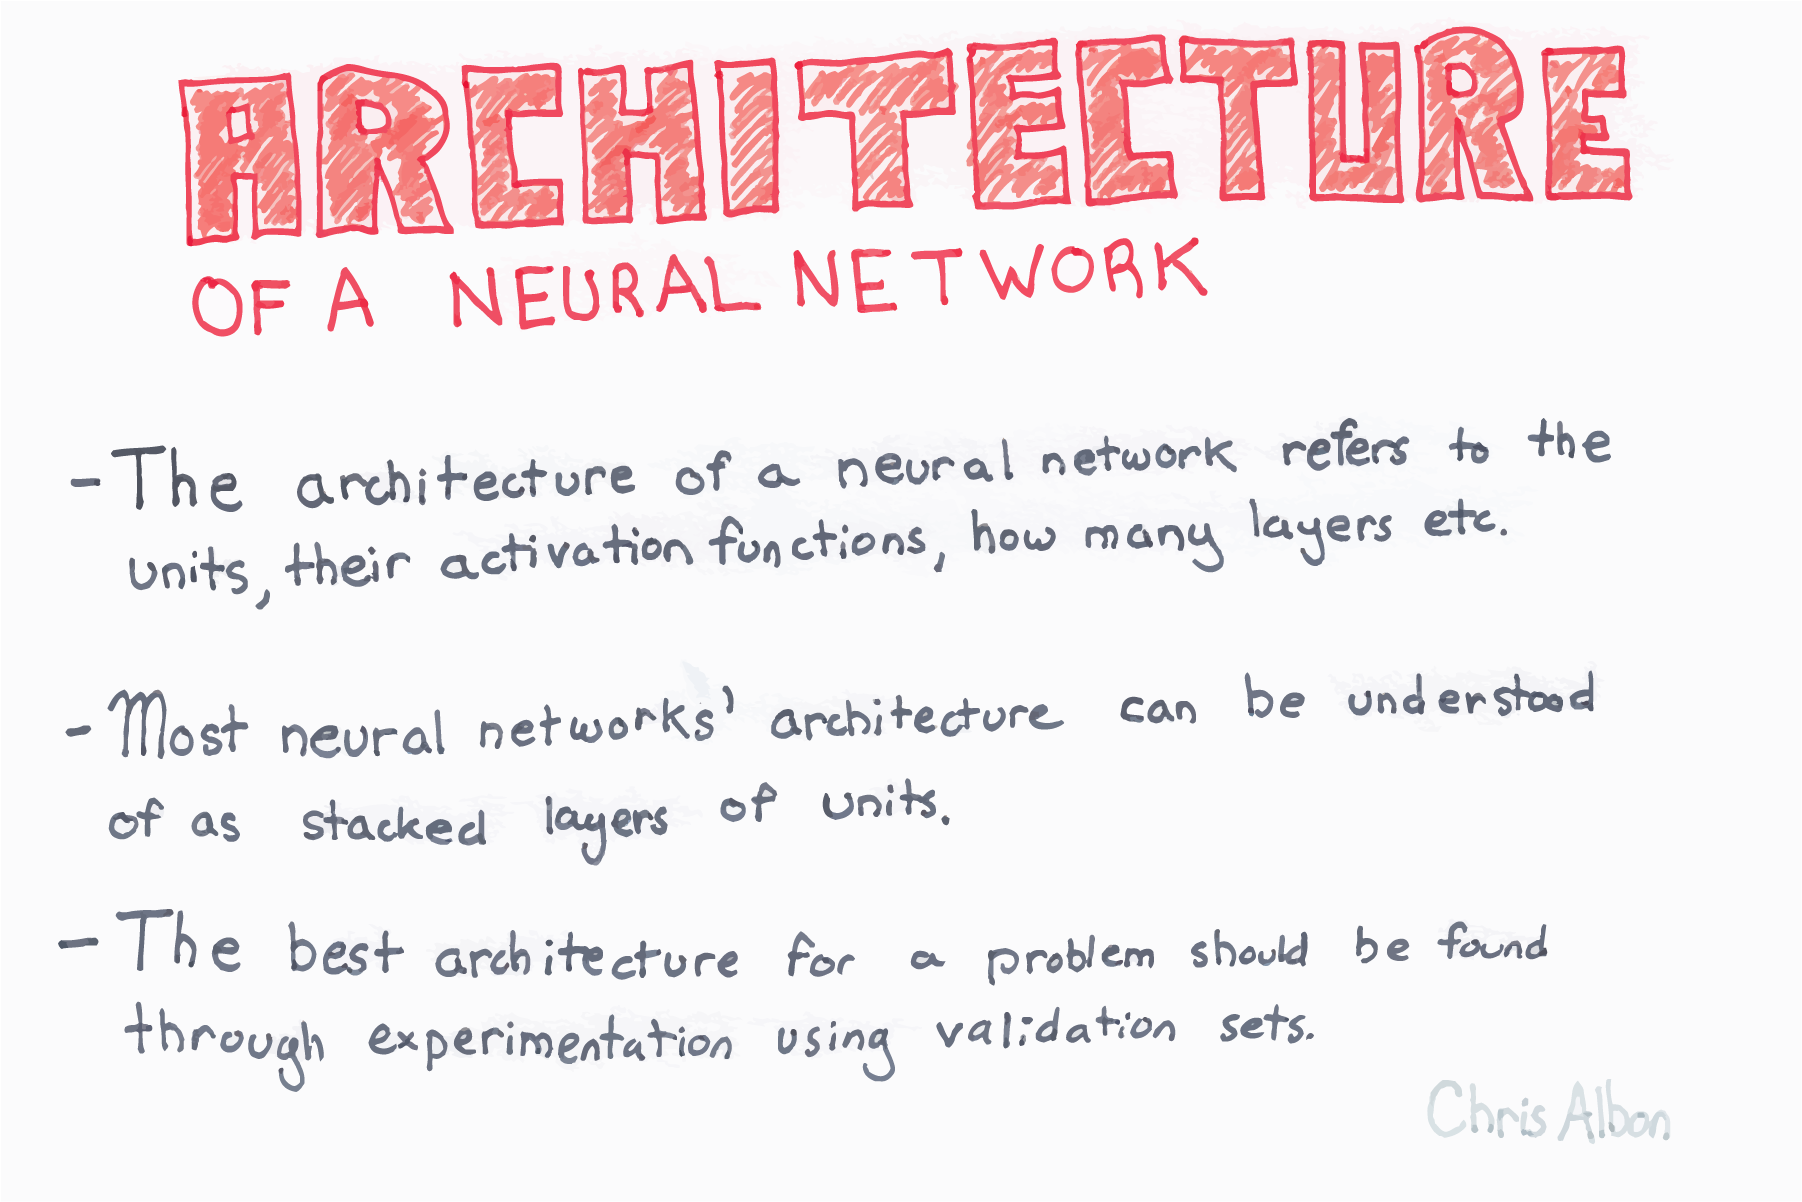 ARCHITECTURE
OF A NEURAL NETWORK
- The architecture of a neural network refers to the
units, their activation functions, how many layers etc.
- Most neural networks' architecture can be understood
of as stacked layers of units.
- The best architecture for a problem should be found
through experimentation using validation sets.
Chris Albon